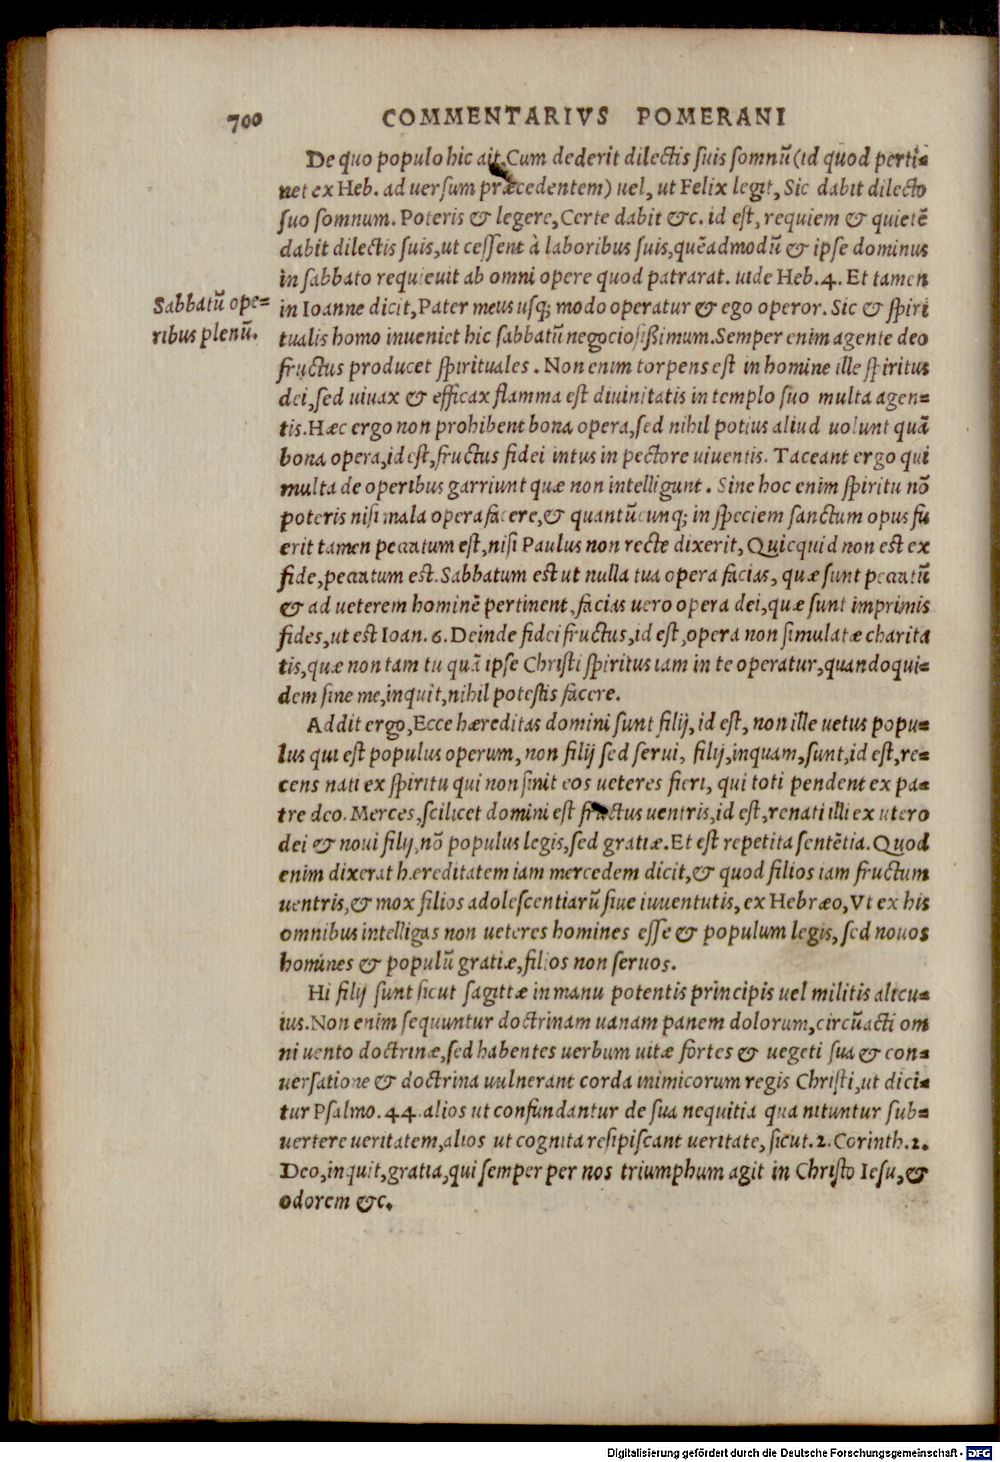 700 COMMENTARIVS POMERANI
De quo populo hic ait, Cum dederit dilectis suis somnũ (id quod perti=
net ex Heb. ad uersum præcedentem) uel, ut Felix legit, Sic dabit dilecto
suo somnum. Poteris & legere, Certe dabit &c. id est, requiem & quietẽ
dabit dilectis suis, ut cessent à laboribus suis, quẽadmodũ & ipse dominus
in sabbato requieuit ab omni opere quod patrarat. uide Heb. 4. Et tamen
Sabbatũ ope=
ribus plenũ.
in Ioanne dicit, Pater meus usq; modo operatur & ego operor. Sic & spiri
tualis homo inueniet hic sabbatũ negociosißimum. Semper enim agente deo
fructus producet spirituales. Non enim torpens est in homine ille spiritus
dei, sed uiuax & efficax flamma est diuinitatis in templo suo multa agen=
tis. Hæc ergo non prohibent bona opera, sed nihil potius aliud uolunt quã
bona opera, id est, fructus fidei intus in pectore uiuentis. Taceant ergo qui
multa de operibus garriunt quæ non intelligunt. Sine hoc enim spiritu nõ
poteris nisi mala opera facere, & quantũcunq; in speciem sanctum opus fu
erit tamen peccatum est, nisi Paulus non recte dixerit, Quicquid non est ex
fide, peccatum est. Sabbatum est ut nulla tua opera facias, quæ sunt peccatũ
& ad ueterem hominẽ pertinent, facias uero opera dei, quæ sunt imprimis
fides, ut est Ioan. 6. Deinde fidei fructus, id est, opera non simulatæ charita
tis, quæ non tam tu quã ipse Christi spiritus iam in te operatur, quandoqui=
dem sine me, inquit, nihil potestis facere.
Addit ergo, Ecce hæreditas domini sunt filij, id est, non ille uetus popu=
lus qui est populus operum, non filij sed serui, filij, inquam, sunt, id est, re=
cens nati ex spiritu qui non sinit eos ueteres fieri, qui toti pendent ex pa=
tre deo. Merces, scilicet domini est fructus uentris, id est, renati illi ex utero
dei & noui filij, nõ populus legis, sed gratiæ. Et est repetita sentẽtia. Quod
enim dixerat hæreditatem iam mercedem dicit, & quod filios iam fructum
uentris, & mox filios adolescentiarũ siue iuuentutis, ex Hebræo, Vt ex his
omnibus intelligas non ueteres homines esse & populum legis, sed nouos
homines & populũ gratiæ, filios non seruos.
Hi filij sunt sicut sagittæ in manu potentis principis uel militis alicu=
ius. Non enim sequuntur doctrinam uanam panem dolorum, circũacti om
ni uento doctrinæ, sed habentes uerbum uitæ fortes & uegeti sua & con=
uersatione & doctrina uulnerant corda inimicorum regis Christi, ut dici=
tur Psalmo. 44. alios ut confundantur de sua nequitia qua nituntur sub=
uertere ueritatem, alios ut cognita resipiscant ueritate, sicut. 2. Corinth. 2.
Deo, inquit, gratia, qui semper per nos triumphum agit in Christo Iesu, &
odorem &c.
Digitalisierung gefördert durch die Deutsche Forschungsgemeinschaft - DFG